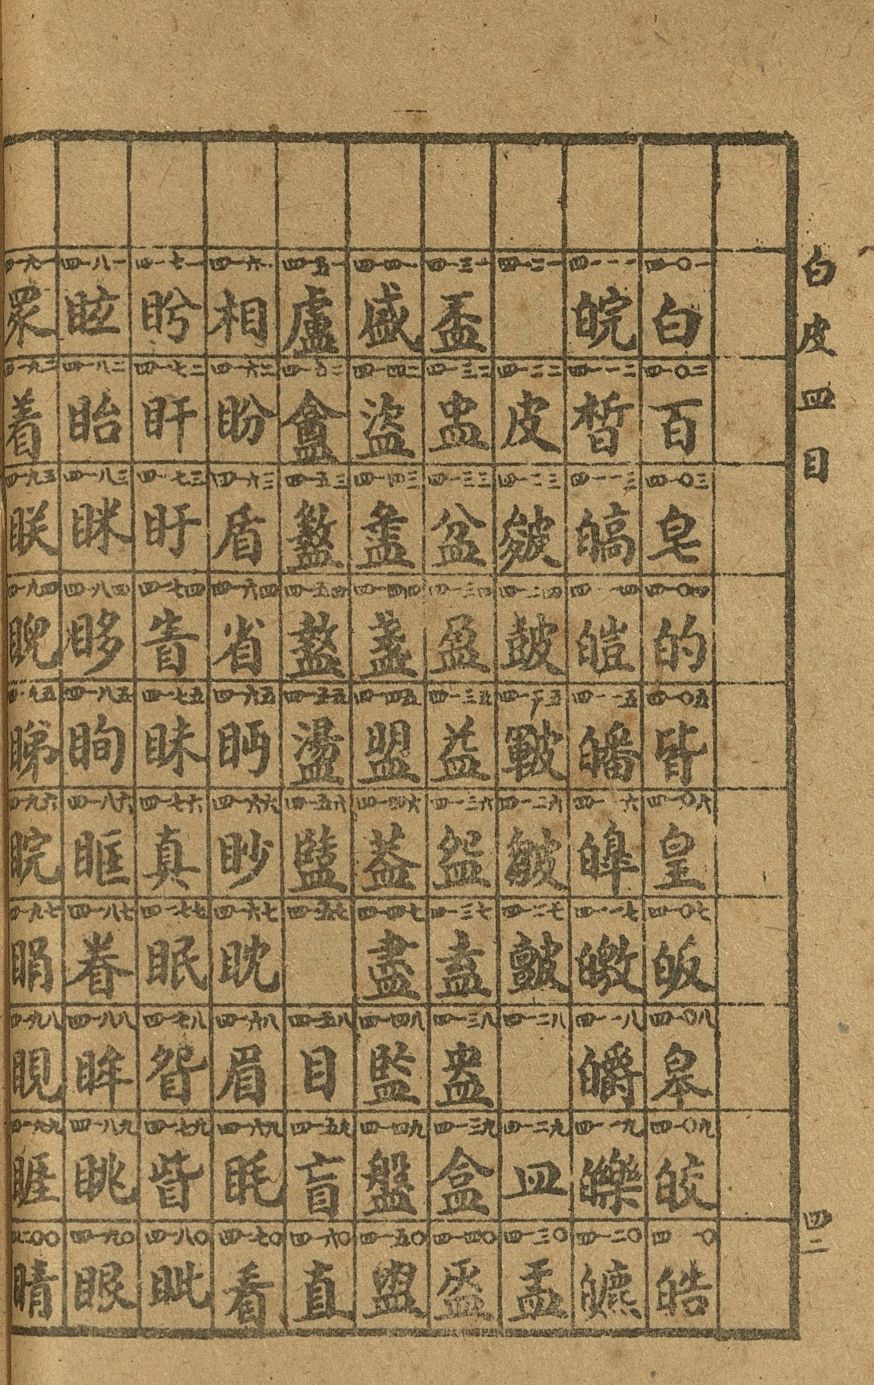 白皮皿目
四二
四一〇一 白 四一〇二 百 四一〇三 皂 四一〇四 的 四一〇五 皆 四一〇六 皇 四一〇七 皈 四一〇八 皋 四一〇九 皎 四一一〇 皓
四一一一 皖 四一一二 皙 四一一三 皜 四一一四 皚 四一一五 皤 四一一六 皞 四一一七 皦 四一一八 皭 四一一九 皪 四一二〇 皫
四一二一 四一二二 皮 四一二三 皴 四一二四 皷 四一二五 皸 四一二六 皺 四一二七 皽 四一二八 四一二九 皿 四一三〇 盂
四一三一 盃 四一三二 盅 四一三三 盆 四一三四 盈 四一三五 益 四一三六 盌 四一三七 盍 四一三八 盎 四一三九 盒 四一四〇 盔
四一四一 盛 四一四二 盜 四一四三 盝 四一四四 盞 四一四五 盟 四一四六 盖 四一四七 盡 四一四八 監 四一四九 盤 四一五〇 盥
四一五一 盧 四一五二 盦 四一五三 盭 四一五四 盩 四一五五 盪 四一五六 盬 四一五七 四一五八 目 四一五九 盲 四一六〇 直
四一六一 相 四一六二 盼 四一六三 盾 四一六四 省 四一六五 眄 四一六六 眇 四一六七 眈 四一六八 眉 四一六九 眊 四一七〇 看
四一七一 盻 四一七二 盰 四一七三 盱 四一七四 眚 四一七五 眛 四一七六 真 四一七七 眠 四一七八 眢 四一七九 眥 四一八〇 眦
四一八一 眩 四一八二 眙 四一八三 眯 四一八四 眵 四一八五 眴 四一八六 眶 四一八七 眷 四一八八 眸 四一八九 眺 四一九〇 眼
四一九一 眾 四一九二 着 四一九三 眹 四一九四 睨 四一九五 睇 四一九六 睆 四一九七 睊 四一九八 睍 四一九九 睚 四二〇〇 睛